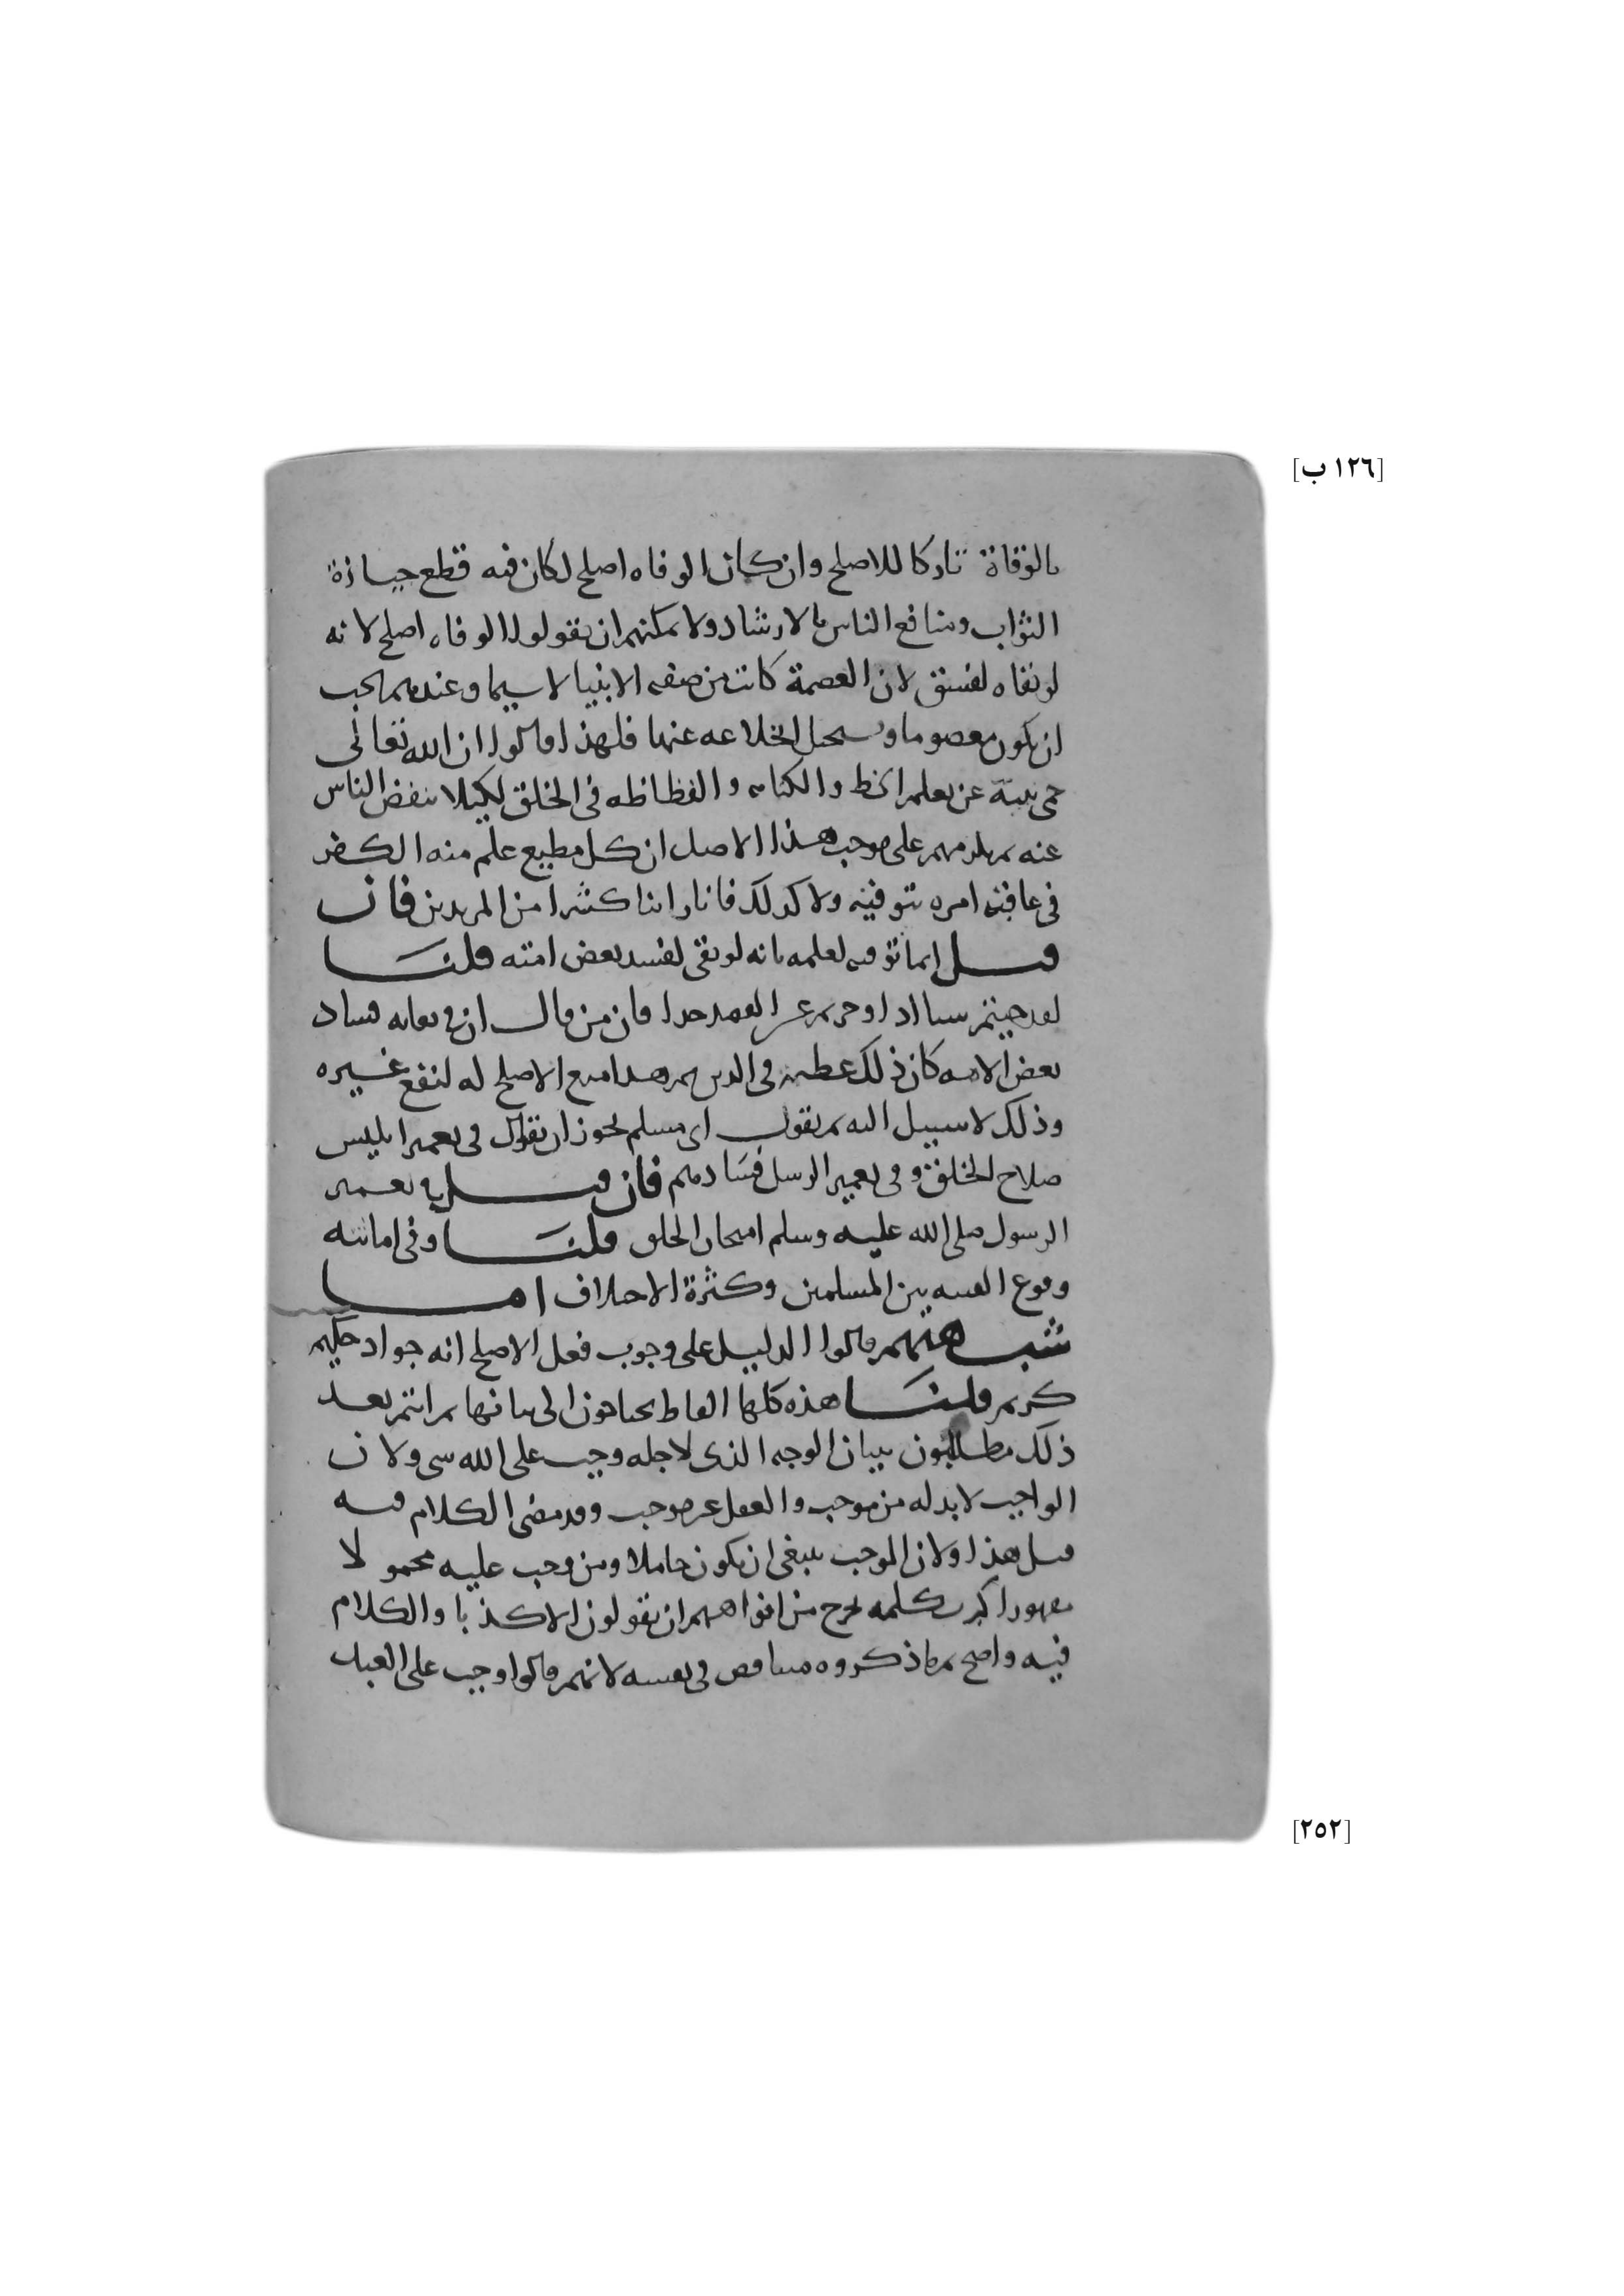 [١٢٦ ب]
بالوفاة تاركا للاصلح وان كان الوفاه اصلح لكان فيه قطع حيازة
الثواب ومنافع الناس بالارشاد ولا يمكنهم ان يقولوا الوفاه اصلح لانه
لو بقاه لفسق لان العصمة كانت من صفه الانبيا لا سيما وعندهم يجب
ان يكون معصوما ويستحيل انخلاعه عنها فلهذا قالوا ان الله تعالى
حمى نبيه عن تعلم الخط والكتابه والفظاظه في الخلق لكيلا ينفض الناس
عنه ثم يلزمهم على موجب هذا الاصل ان كل مطيع علم منه الكفر
في عاقبة امره يتوفيه ولا كذلك فانا راينا كثيرا من المرتدين فان
قيل انما توفيه لعلمه بانه لو بقى لفسد بعض امته قلنا
لقد جيتم شيا ادا وخرجتم عن العهد جدا فان من قال ان في بقايه فساد
بعض الامه كان ذلك في الدين ثم هذا منع الاصلح له لنفع غيره
وذلك لا سبيل اليه ثم نقول اى مسلم يجوز ان يقول في تعمير ابليس
صلاح الخلق وفي تعمير الرسل فسادهم فان قيل في تعمير
الرسول صلى الله عليه وسلم امتحان الخلق قلنا وفي اماتته
وقوع الفتنه بين المسلمين وكثرة الاختلاف اما
شبهتهم قالوا الدليل على وجوب فعل الاصلح انه جواد حكيم
كريم قلنا هذه كلها الفاظ يحتاجون الى بيانها ثم انتم بعد
ذلك مطالبون ببيان الوجه الذى لاجله وجب على الله شى ولان
الواجب لا بد له من موجب والعقل غير موجب وقد مضى الكلام فيه
قبل هذا ولان الموجب ينبغى ان يكون حاملا ومن وجب عليه محمولا
مقهورا كبرت كلمه تخرج من افواههم ان يقولون الا كذبا والكلام
فيه واضح ثم ما ذكروه متناقض في نفسه لانهم قالوا وجب على العبد
[٢٥٢]